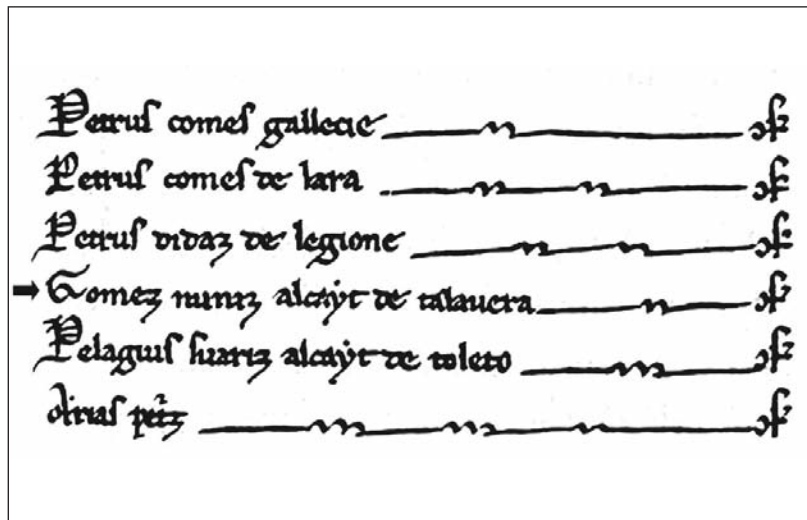 Petrus comes gallecie
Petrus comes de lara
Petrus didaz de legione
Gomez nuniz alcayt de talauera
Pelagius suariz alcayt de toleto